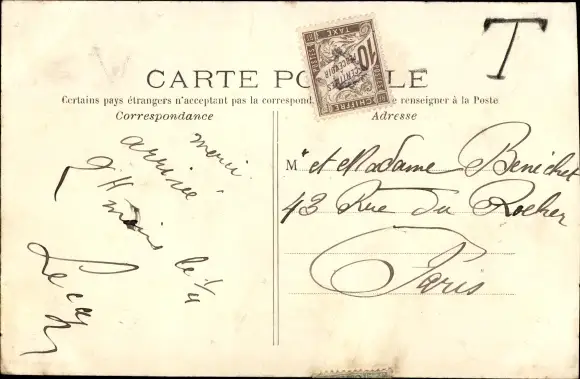 T
CARTE POSTALE
Certains pays étrangers n'acceptant pas la correspond se renseigner à la Poste
Correspondance
Adresse
CHIFFRE
10
TAXE
A PERCEVOIR
merci
arrivée
Le
le 1/4
Mr et Madame Benichet
43 Rue du Rocher
Paris